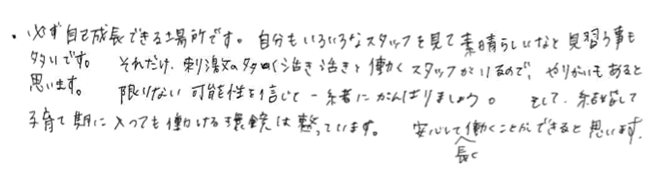 ・必ず自己成長できる場所です。 自分もいろいろなスタッフを見て素晴らしいなと見習う事も
多いです。 それだけ、刺激の多く活き活きと働くスタッフがいるので、やりがいもあると
思います。 限りない可能性を信じて一緒にがんばりましょう。 そして、結婚して
子育て期に入っても働ける環境は整っています。 安心して長く働くことができると思います。